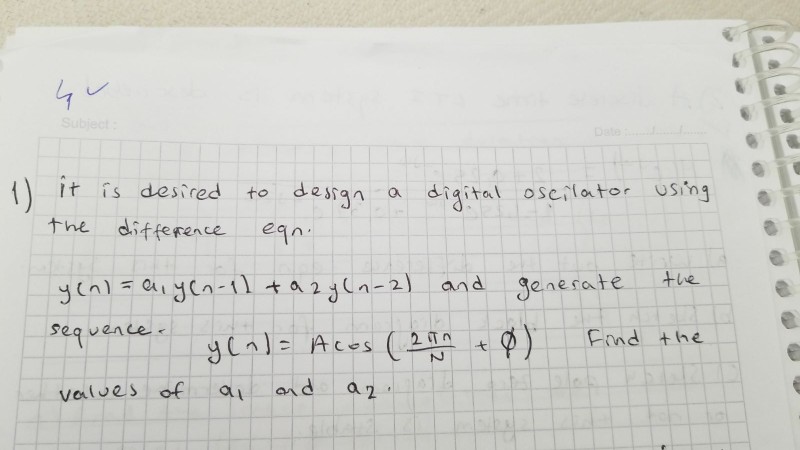 4 ✓
Subject :
Date : ....../....../......
1) it is desired to design a digital oscilator using
the difference eqn.
y(n) = a₁y(n-1) + a2y(n-2) and generate the
sequence.
y(n) = Acos (2πn/N + ϕ) Find the
values of a₁ and a₂.